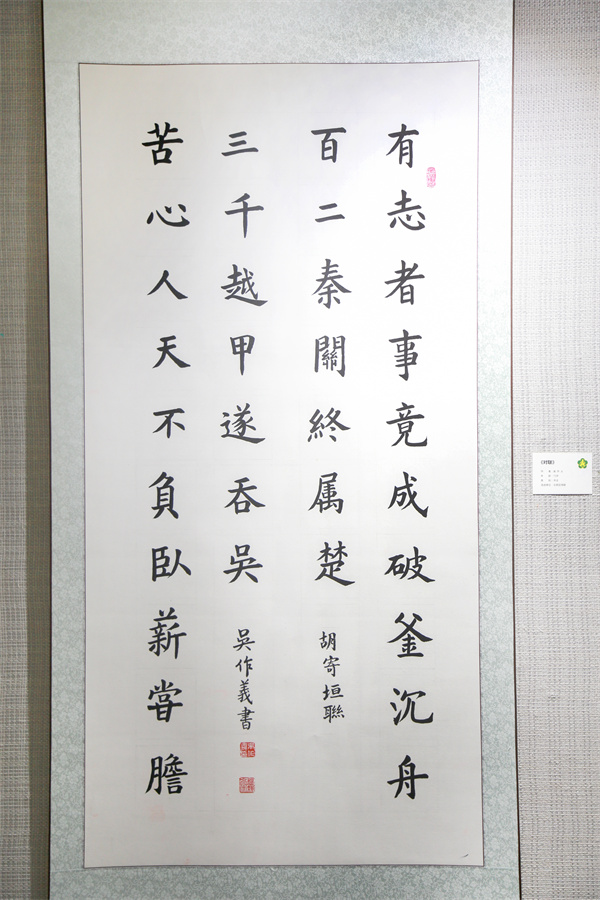 有志者事竟成破釜沉舟
百二秦關終属楚
胡寄垣聯
苦心人天不負臥薪嘗膽
三千越甲遂吞吳
吳作義書